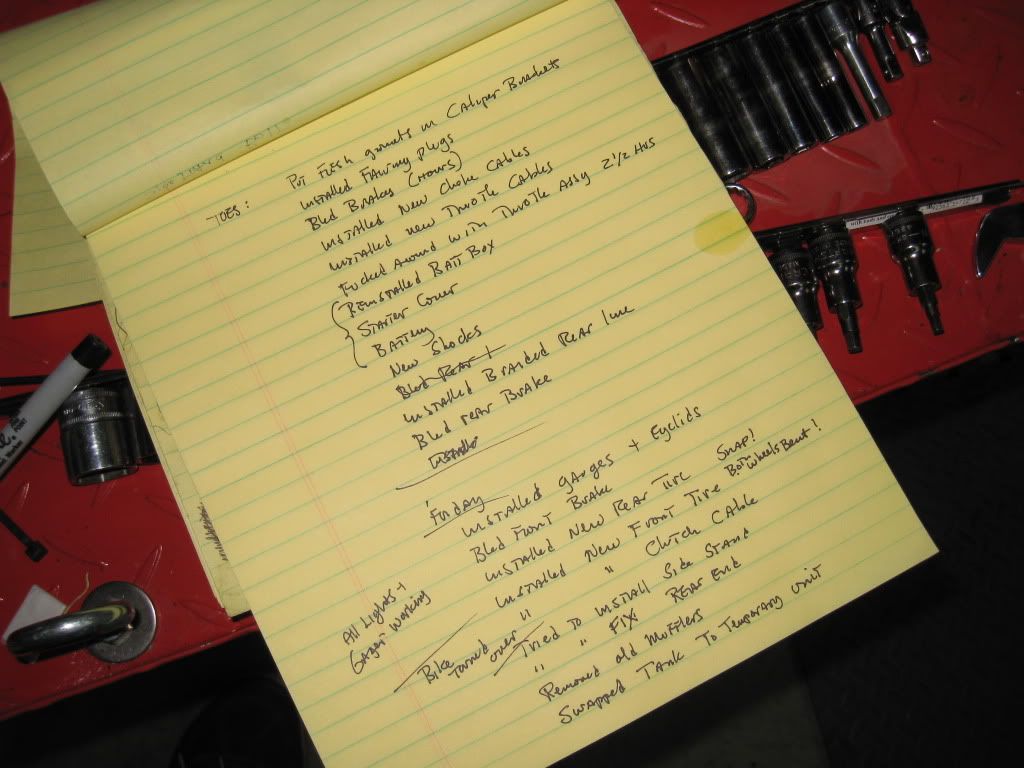 TUES:
Put FRESH grommets in CAliper Brackets
INSTAlled FAiring plugs
Bled BrAkes (Hours)
INSTAlled New choke CAbles
INSTAlled new Throttle CAbles
Fucked Around with Throttle ASSY 2 1/2 Hrs
REINSTAlled BAtt Box
STArter Cover
BATTery
New Shocks
Bled Rear +
INSTAlled BrAided Rear line
Bled rear BrAke
INSTAlled
Friday
INSTAlled gauges + Eyelids
Bled Front BrAke
INSTAlled New Rear Tire SNAP!
INSTAlled New Front Tire Both Wheels Bent!
" " Clutch CAble
Tried To INSTAll Side STAND
" " FIX REAR END
Removed old Mufflers
SwApped TANK To TemporAry unit
All Lights +
Gauges Working
Bike
Turned
over